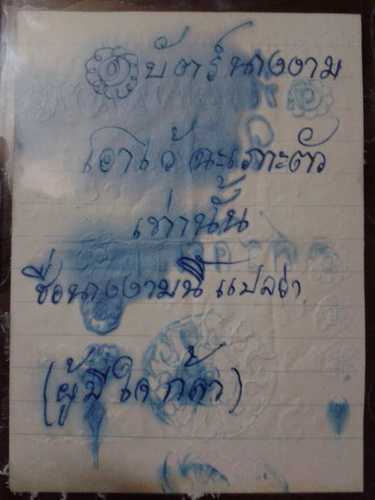 บัตร์นางงาม
เอาไว้ฉะเภาะตัว
เท่านั้น
ชื่อนางงามนี้ แปลว่า
(ผู้มีใดกล้า)